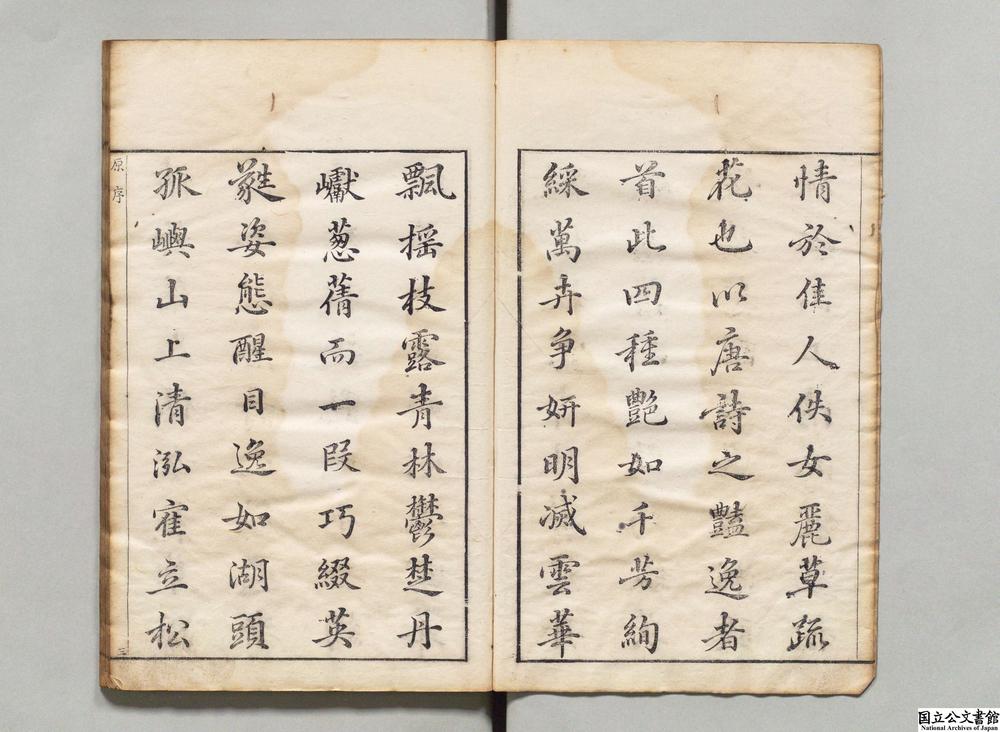 情於佳人佚女麗草疏
花也以唐詩之豔逸者
首此四種艷如千芳絢
綵萬卉争妍明滅雲華
飄摇枝露青林鬱楚丹
巘葱蒨而一段巧綴英
蕤姿態醒目逸如湖頭
孤嶼山上清泓寉立松
原序
三
国立公文書館
National Archives of Japan